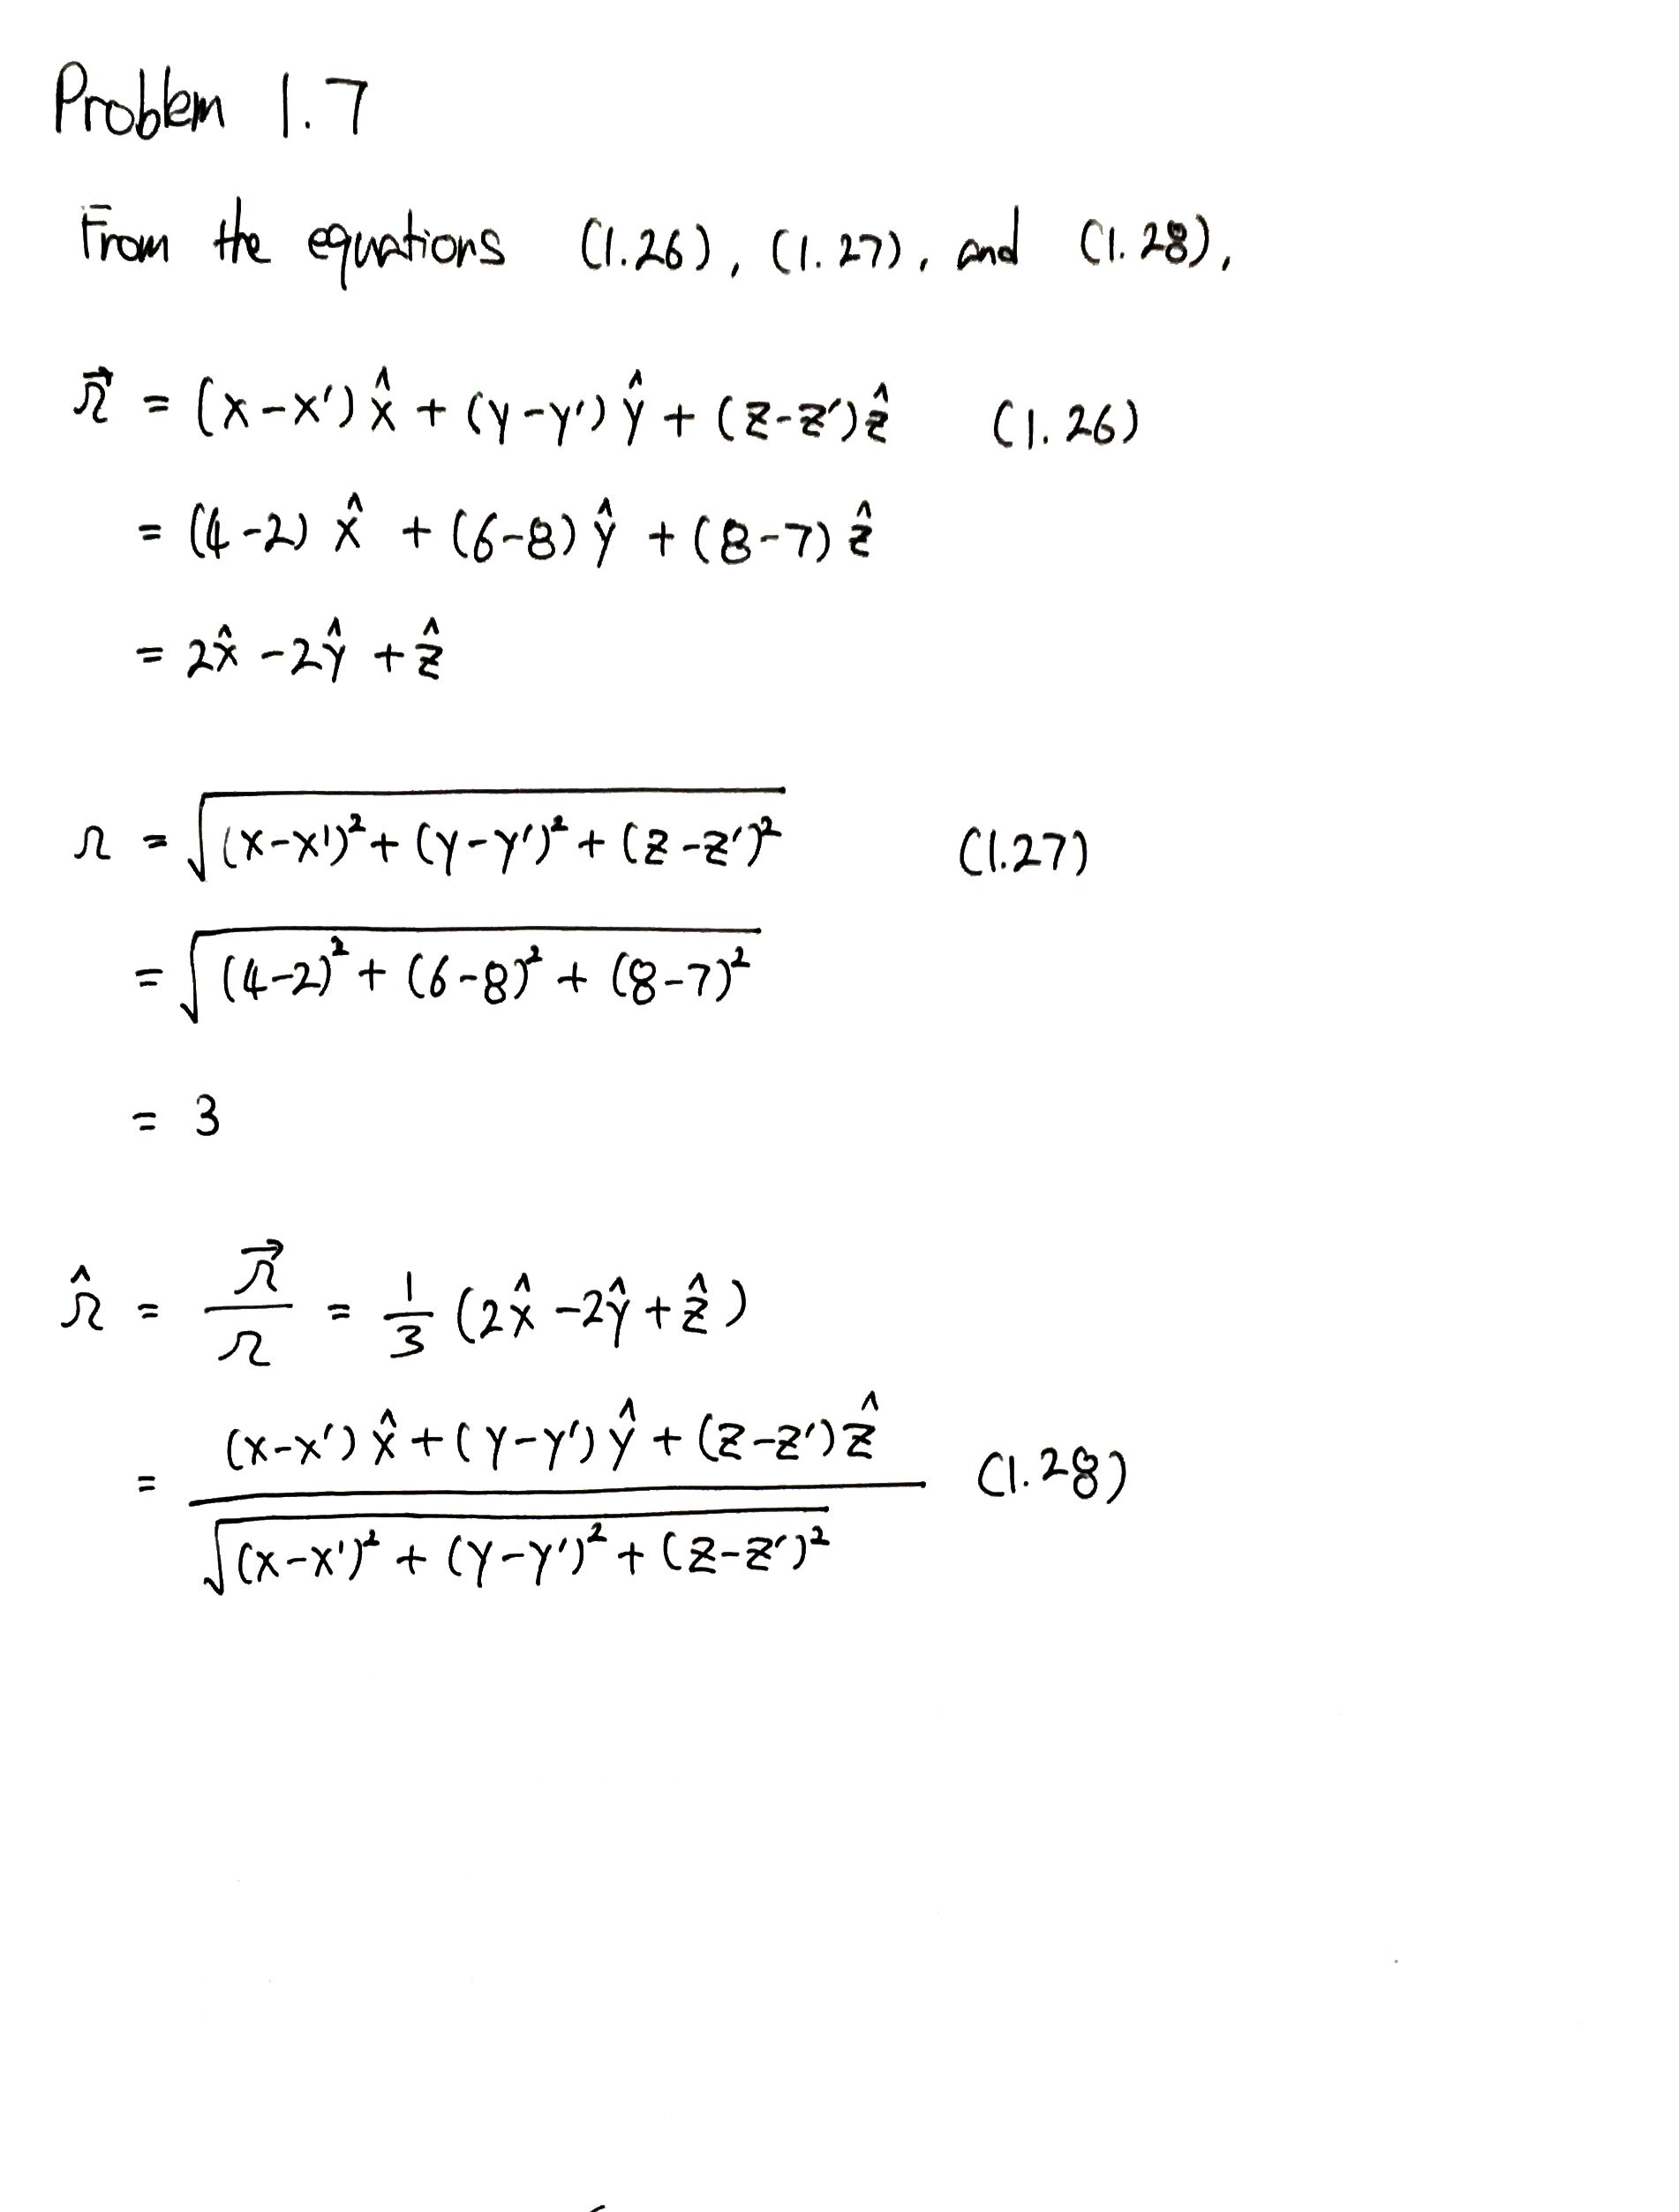 Problem 1.7
From the equations (1.26), (1.27), and (1.28),
$\vec{r} = (x-x')\hat{x} + (y-y')\hat{y} + (z-z')\hat{z}$ (1.26)
$= (4-2)\hat{x} + (6-8)\hat{y} + (8-7)\hat{z}$
$= 2\hat{x} - 2\hat{y} + \hat{z}$
$r = \sqrt{(x-x')^2 + (y-y')^2 + (z-z')^2}$ (1.27)
$= \sqrt{(4-2)^2 + (6-8)^2 + (8-7)^2}$
$= 3$
$\hat{r} = \frac{\vec{r}}{r} = \frac{1}{3}(2\hat{x} - 2\hat{y} + \hat{z})$
$= \frac{(x-x')\hat{x} + (y-y')\hat{y} + (z-z')\hat{z}}{\sqrt{(x-x')^2 + (y-y')^2 + (z-z')^2}}$ (1.28)